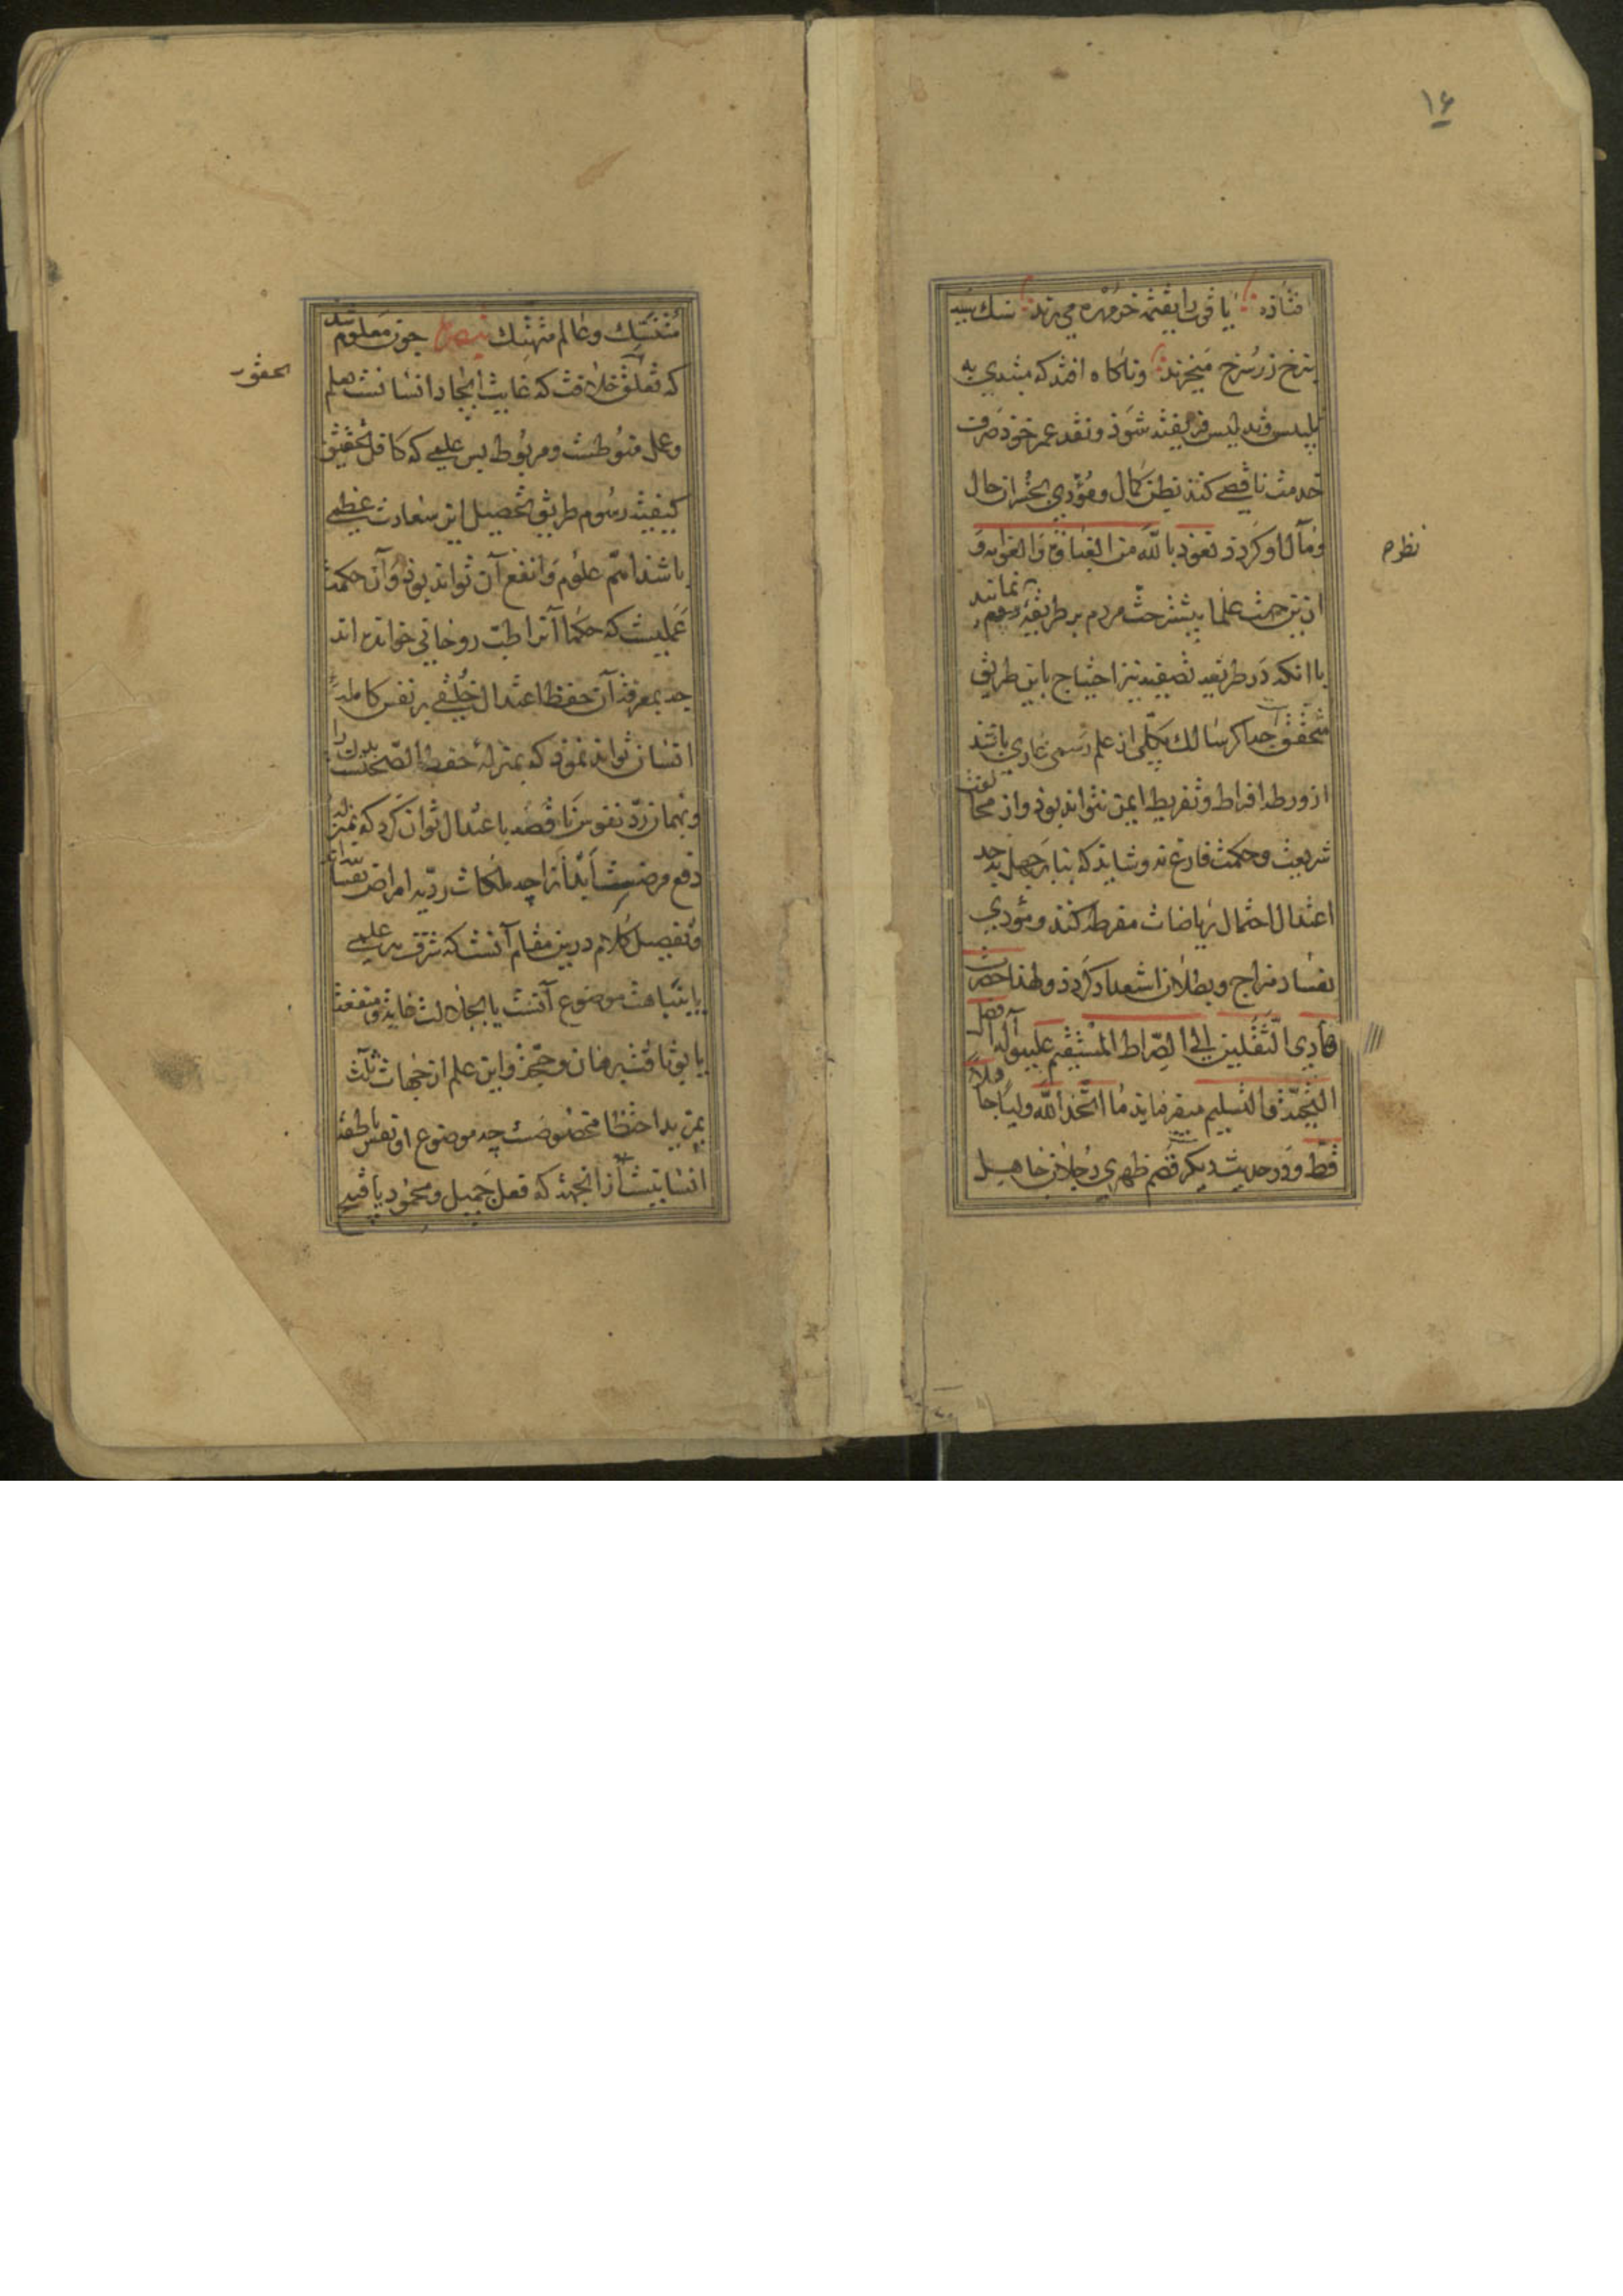 ۱۶
فتاده یاقوت را بقیمت خرمهره می‌خرند سنگ سیه
بنرخ زر سرخ میخرند و ناگاه افتد که مبتدی به
تلبیس ابلیس فریفته شود و نقد عمر خود صرف
خدمت ناقصی کند بظن کمال و مؤدی بخسران حال
و مآل او گردد نعوذ بالله من الغباوة و الغوایه و
از این جهت علما بیشتر حث مردم بر طریقه نموده‌اند
با آنکه در طریقه تصفیه نیز احتیاج باین طریق
متحقق است چه اگر سالک بکلی از علم رسمی عاری باشد
از ورطه افراط و تفریط ایمن نتواند بود و از مخالفت
شریعت و حکمت فارغ نه و شاید که بنا بر جهل بحد
اعتدال احتمال ریاضات مفرطه کند و مؤدی
بفساد مزاج و بطلان استعداد گردد و لهذا حضرت
هادی الثقلین الی الصراط المستقیم علیه و آله افضل
التحیة و التسلیم میفرماید ما اتخذ الله ولیا جاهلا
قط و در حدیث دیگر قصم ظهری رجلان جاهل
نظره
متنسک و عالم متهتک تبصره چون معلوم شد
که تعلق خلافت که غایت ایجاد انسانست بعلم
و عمل منوطست و مربوط پس علمی که کافل تحقیق
کیفیت رسوم طریق تحصیل این سعادت عظمی
باشد اتم علوم و انفع آن تواند بود و آن حکمت
عملیست که حکما آنرا طب روحانی خوانده اند
چه بمعرفت آن حفظ اعتدال خلقی بر نفس کامله
انسان تواند نمود که بمنزله حفظ الصحتست بدن را
و بهمان رد نفوس ناقصه باعتدال توان کرد که بمنزله
دفع مرض است ابدانرا چه ملکات ردیه امراض نفسانیه اند
و تفصیل کلام درین مقام آنست که شرف هر علمی
یا بنباهت موضوع آنست یا بجلالت غایت و منفعت
یا بوثاقت برهان و حجت و این علم از جهات ثلث
بمزید احتظا مخصوصست چه موضوع او نفس ناطقه
انسانیست از آنجهت که فعل جمیل و محمود یا قبیح